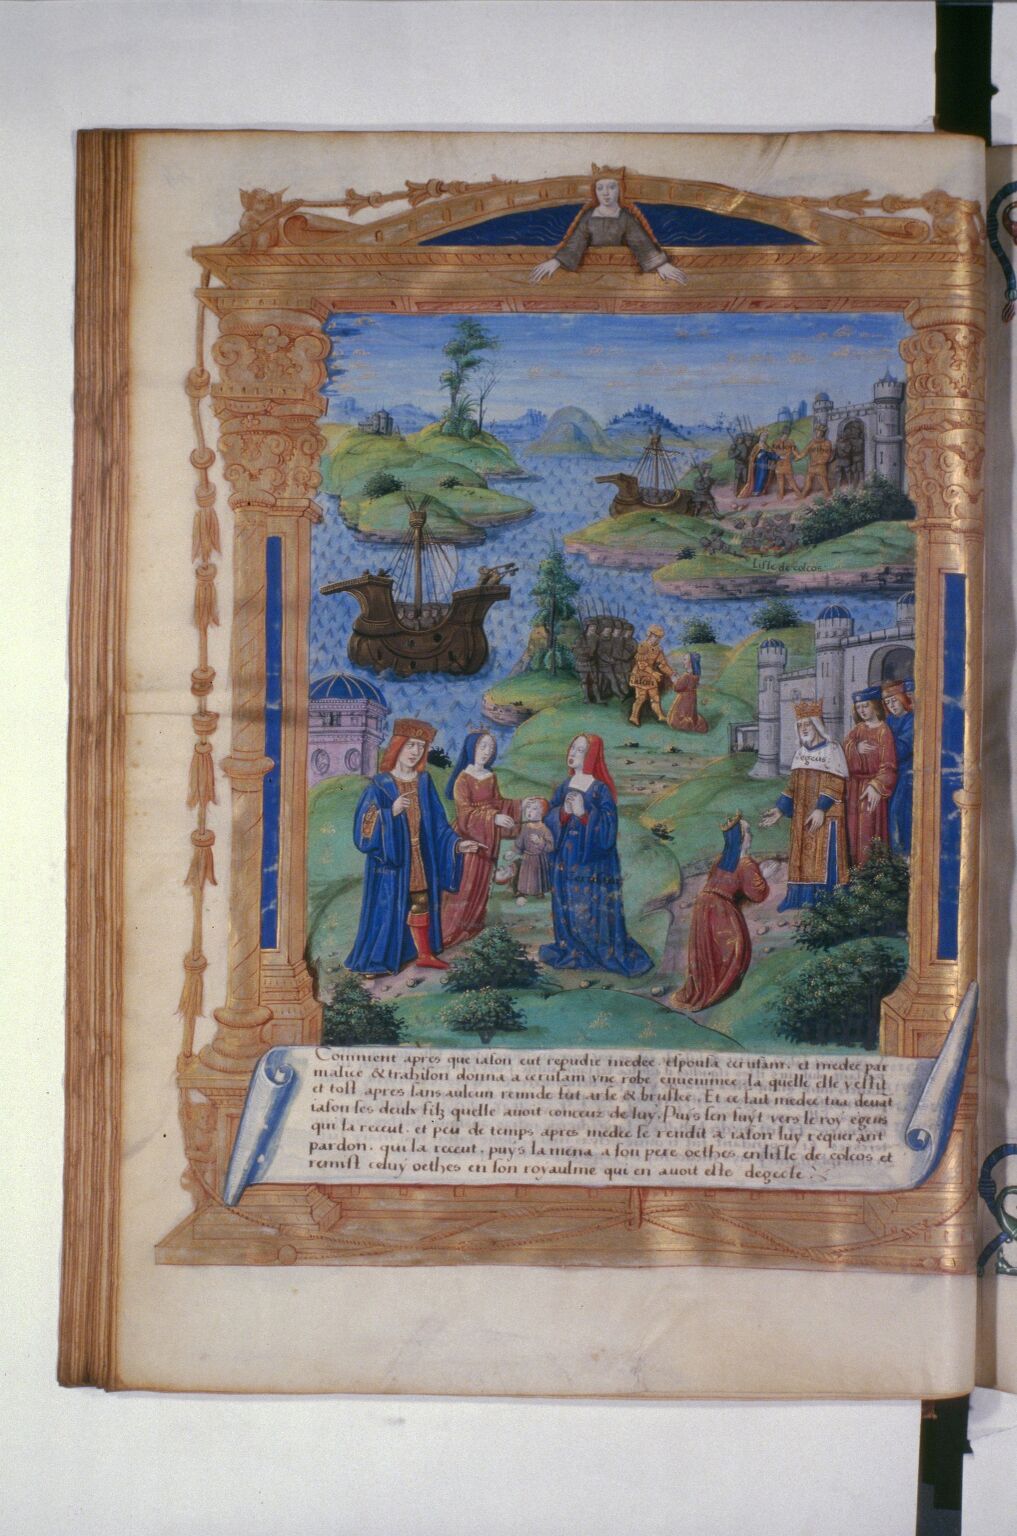 Liste de colcos
iason
egeus
Comment apres que iason eut repudie medee espousa ccrusam, et medee par
malice & trahison donna a ccrusam vne robe enuenimee la quelle elle vestit
et tost apres sans aulcun remide fut arse & bruslee. Et ce fait medee tua deuat
iason ses deulx filz quelle auoit conceuz de luy. Puys sen fuyt vers le roy egeus
qui la receut, et peu de temps apres medee se rendit a iason luy requerant
pardon. qui la receut. puys la mena a son pere oethes en lisle de colcos et
remist celuy oethes en son royaulme qui en auoit este degecte.